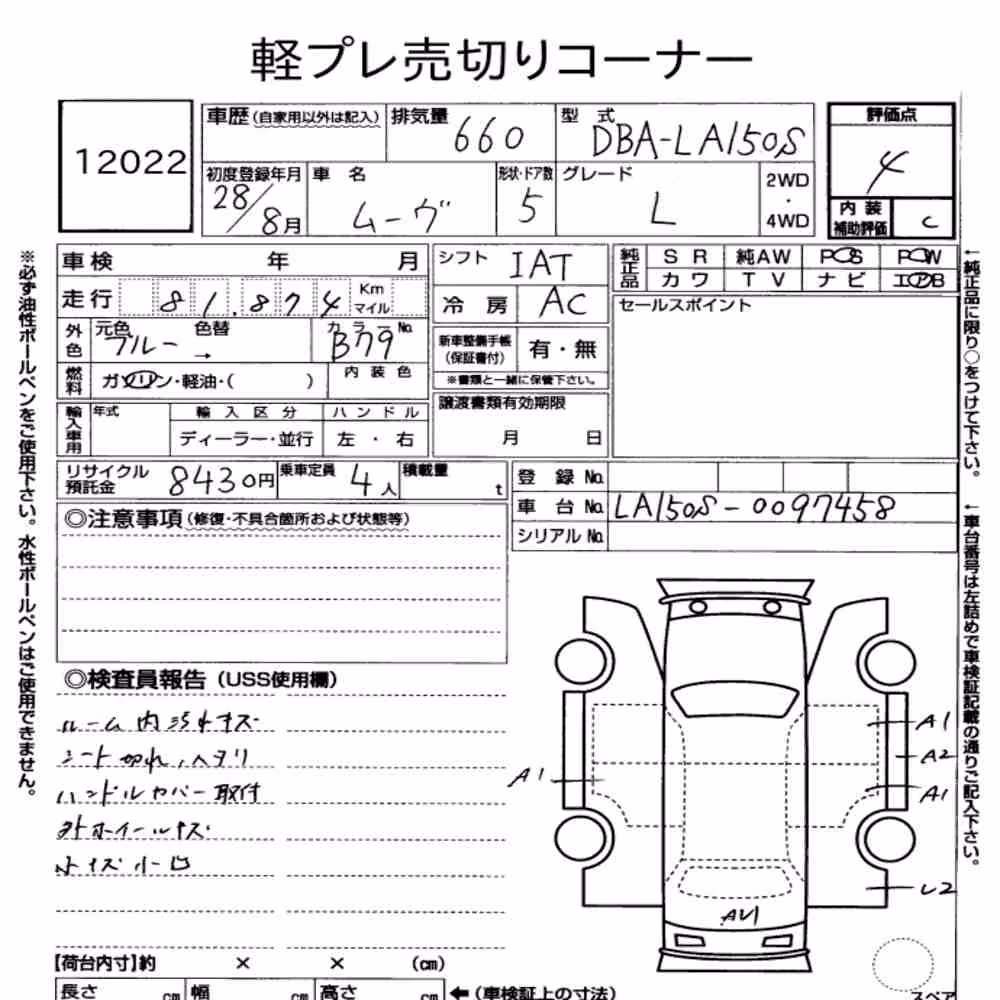 軽プレ売切りコーナー
12022
車歴(自家用以外は記入) 排気量 660 型式 DBA-LA150S
初度登録年月 28/8月 車名 ムーヴ 形状・ドア数 5 グレード L 2WD・4WD
評価点 4
内装補助評価 C
車検 年 月
走行 81,874 Km マイル
外色 元色 ブルー 色替 → カラーNo. B79
燃料 ガソリン・軽油・( ) 内装色
輸入車用 年式 輸入区分 ハンドル
ディーラー・並行 左・右
シフト IAT
冷房 AC
新車整備手帳(保証書付) 有・無
※書類と一緒に保管下さい。
譲渡書類有効期限
月 日
純正品 SR 純AW PS PW
カワ TV ナビ エアB
セールスポイント
リサイクル預託金 8430円 乗車定員 4人 積載量 t
登録No.
車台No. LA150S-0097458
シリアルNo.
◎注意事項(修復・不具合箇所および状態等)
◎検査員報告(USS使用欄)
ルーム内汚れキズ
シート切れ、ヘタリ
ハンドルカバー取付
外ホイールキズ
A1
A1
A2
A1
U2
AU1
【荷台内寸】約 × × (cm)
長さ cm 幅 cm 高さ cm ←(車検証上の寸法)
スペア
※必ず油性ボールペンをご使用下さい。水性ボールペンはご使用できません。
←純正品に限り○をつけて下さい。
←車台番号は左詰めで車検証記載の通りご記入下さい。